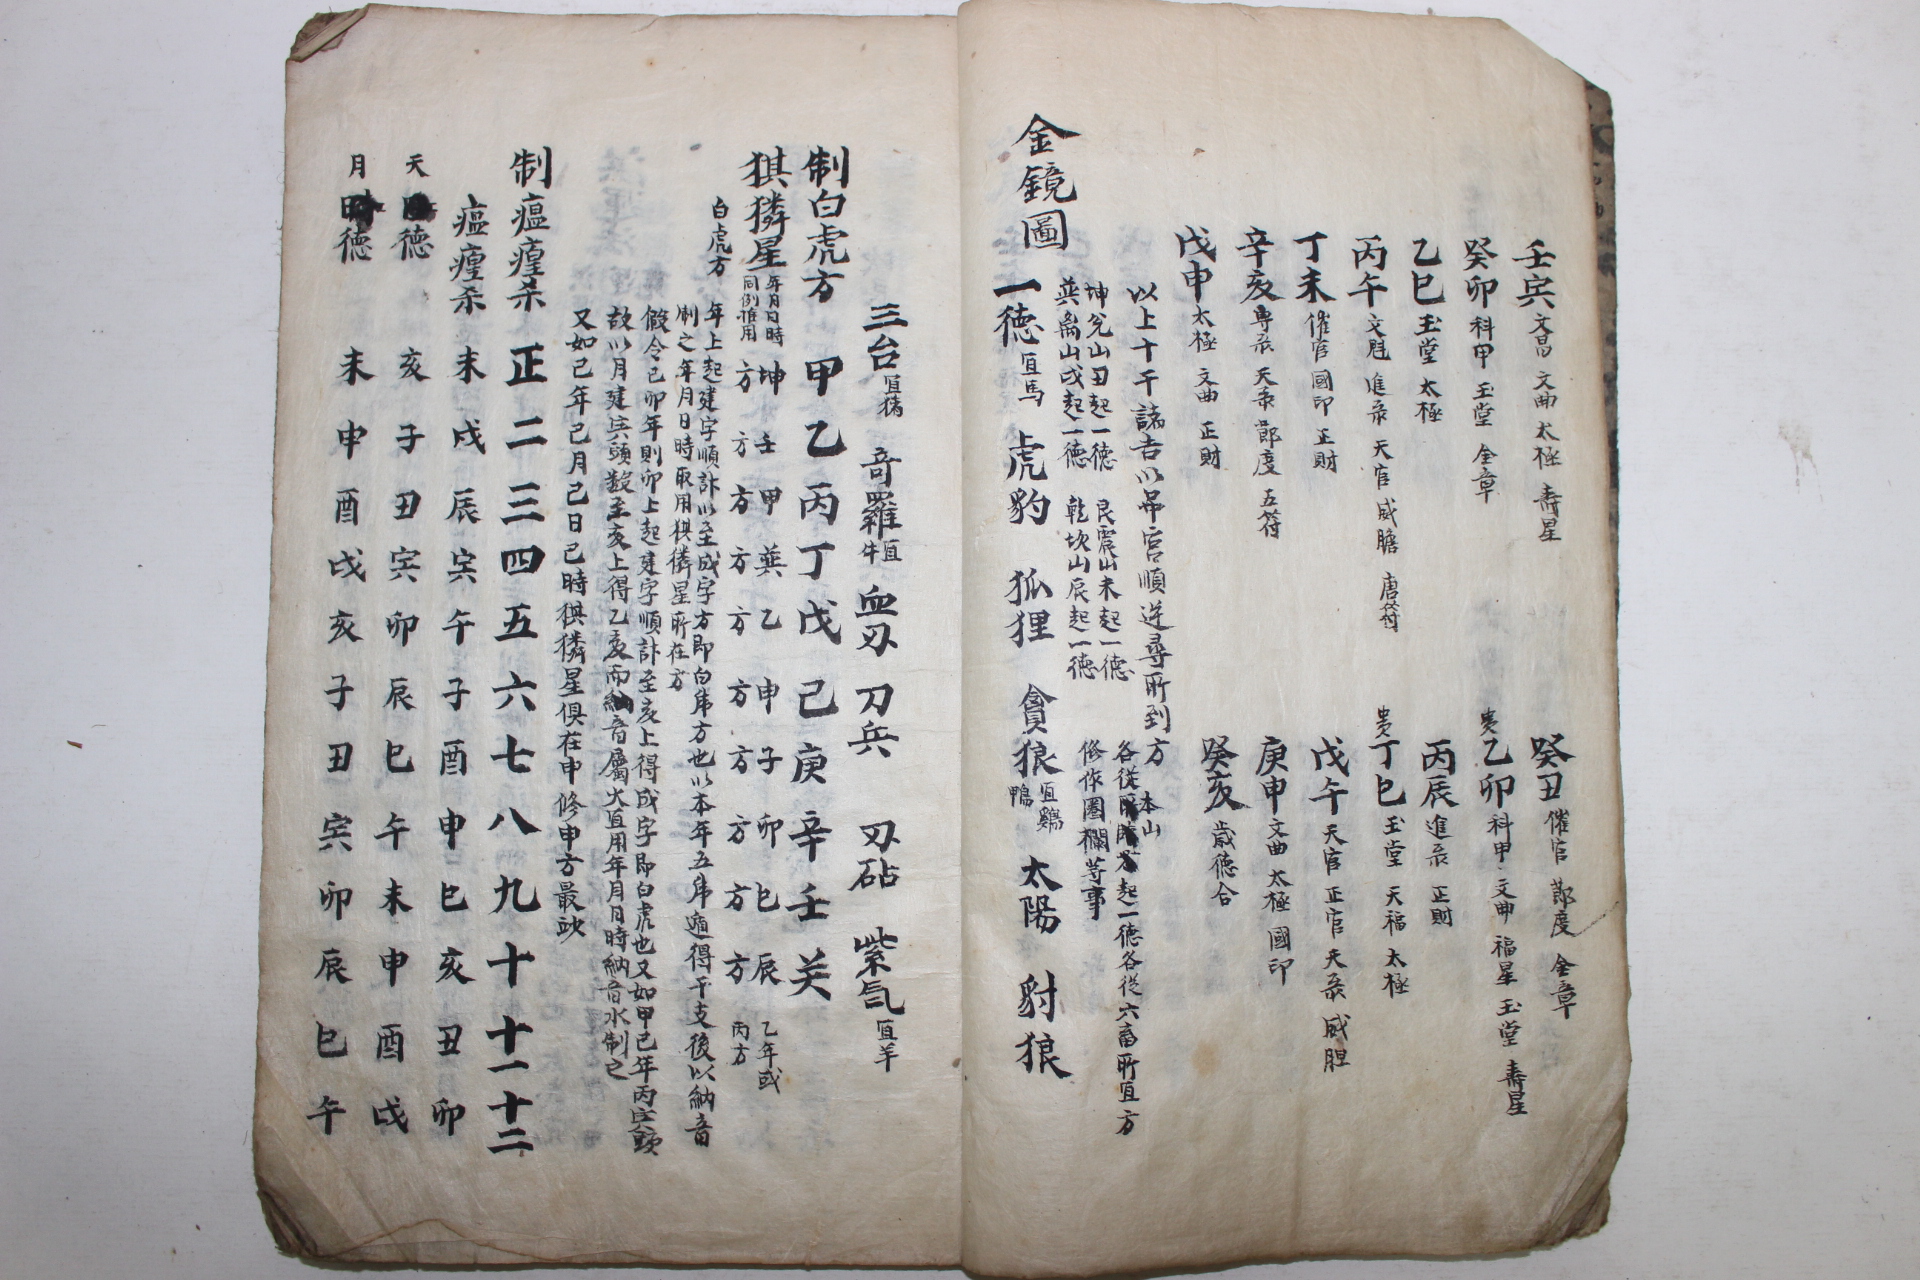 壬寅 文昌 文曲 太極 壽星
癸丑 催官 節度 金章
癸卯 科甲 玉堂 金章
貴 乙卯 科甲 文曲 福星 玉堂 壽星
乙巳 玉堂 太極
丙辰 進彔 正財
丙午 文魁 進彔 天官 威膽 唐符
貴 丁巳 玉堂 天福 太極
丁未 催官 國印 正財
戊午 天官 正官 天彔 威胆
辛亥 專彔 天彔 節度 五符
庚申 文曲 太極 國印
戊申 太極 文曲 正財
癸亥 歲德合
以上十干諸吉以吊宮順逆尋所到方
坤兌山丑起一徳 艮震山未起一徳
巽离山戌起一徳 乾坎山辰起一徳
各從本山起一徳各從六畜所宜方
修作圈欄等事
金鏡圖
一徳 宜馬 虎豹 狐狸 貪狼 宜鷄鴨 太陽 豺狼
三台 宜猪 奇羅 宜牛 血刃 刀兵 刃砧 紫气 宜羊
制白虎方 甲乙丙丁戊己庚辛壬癸
猉獜星 年月日時同例推用 坤方 壬方 甲方 巽方 乙方 申方 子方 卯方 巳方 辰方 乙年或丙方
白虎方 年上起建字順計以至成字方即白虎方也以本年五虎遁得干支後以納音
制之年月日時取用猉獜星所在方
假令己卯年則卯上起建字順計至亥上得成字即白虎也又如甲己年丙寅頭
故以月建寅頭数至亥上得乙亥而納音属火宜用年月日時納音水制之
又如己年己月己日己時猉獜星俱在申修申方最妙
制瘟瘟杀 正二三四五六七八九十十一十二
瘟瘟杀 未戌辰寅午子酉申巳亥丑卯
天徳 亥子丑寅卯辰巳午未申酉戌
月徳 未申酉戌亥子丑寅卯辰巳午